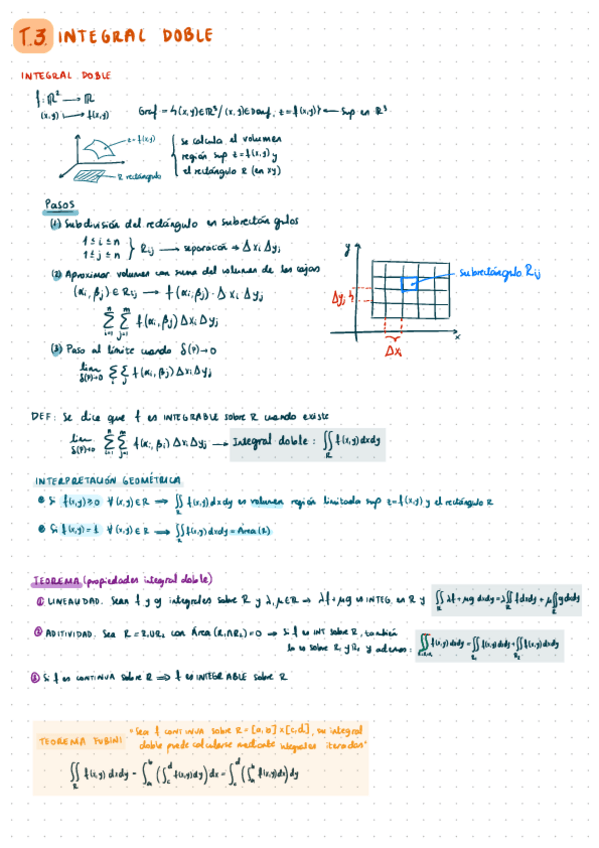 T.3. INTEGRAL DOBLE
INTEGRAL DOBLE
f: ℝ² → ℝ
(x,y) ↦ f(x,y)
Graf = {(x,y)∈ℝ³/(x,y)∈Domf, z=f(x,y)} ← Sup en ℝ³
z=f(x,y)
R rectángulo
Se calcula el volumen
región sup z=f(x,y) y
el rectángulo R (en xy)
Pasos
(1) Subdivisión del rectángulo en subrectángulos
1≤i≤n
1≤j≤n } Rij → separación → Δxi Δyj
(2) Aproximar volumen con suma del volumen de las cajas
(αi, βj) ∈ Rij → f(αi, βj) · Δxi Δyj
∑_{i=1}^{n} ∑_{j=1}^{m} f(αi, βj) Δxi Δyj
(3) Paso al límite cuando δ(P)→0
lim_{δ(P)→0} ∑_i ∑_j f(αi, βj) Δxi Δyj
y
subrectángulo Rij
Δyj
x
Δxi
DEF: Se dice que f es INTEGRABLE sobre R cuando existe
lim_{δ(P)→0} ∑_{i=1}^{n} ∑_{j=1}^{m} f(αi, βi) Δxi Δyj → Integral doble : ∬_R f(x,y)dxdy
INTERPRETACIÓN GEOMÉTRICA
• Si f(x,y)≥0 ∀(x,y)∈R ⟹ ∬_R f(x,y)dxdy es volumen región limitada sup z=f(x,y) y el rectángulo R
• Si f(x,y)=1 ∀(x,y)∈R ⟹ ∬_R f(x,y)dxdy = Área(R)
TEOREMA (propiedades integral doble)
① LINEALIDAD. Sean f y g integrables sobre R y λ,μ∈ℝ → λf+μg es INTEG. en R y ∬_R λf+μg dxdy = λ∬_R f dxdy + μ∬_R g dxdy
② ADITIVIDAD. Sea R=R₁∪R₂ con Área(R₁∩R₂)=0 → Si f es INT sobre R, también
lo es sobre R₁ y R₂ y además: ∬_{R=R₁∪R₂} f(x,y)dxdy = ∬_{R₁} f(x,y)dxdy + ∬_{R₂} f(x,y)dxdy
③ Si f es CONTINUA sobre R ⟹ f es INTEGRABLE sobre R
TEOREMA FUBINI
"Sea f CONTINUA sobre R=[a,b]×[c,d], su integral
doble puede calcularse mediante integrales iteradas"
∬_R f(x,y)dxdy = ∫_a^b (∫_c^d f(x,y)dy)dx = ∫_c^d (∫_a^b f(x,y)dx)dy